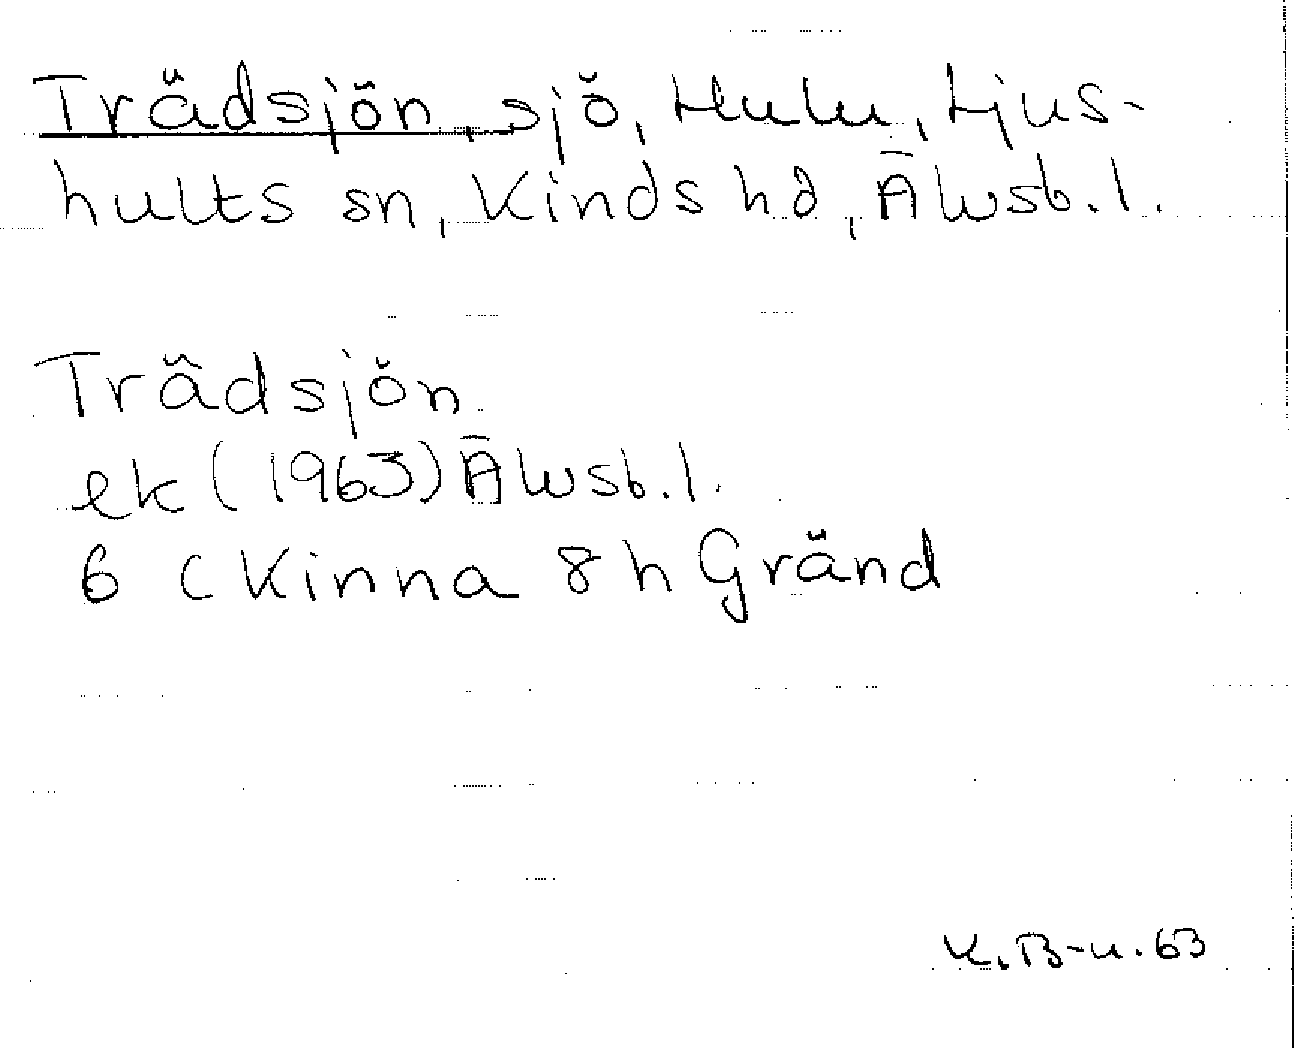 Trädsjön, sjö, Hulu, Ljus-
hults sn, Kinds hd, Älvsb. l.
Trädsjön
ek (1963) Älvsb. l.
6 C Kinna 8 h Gränd
K. B-u. 63